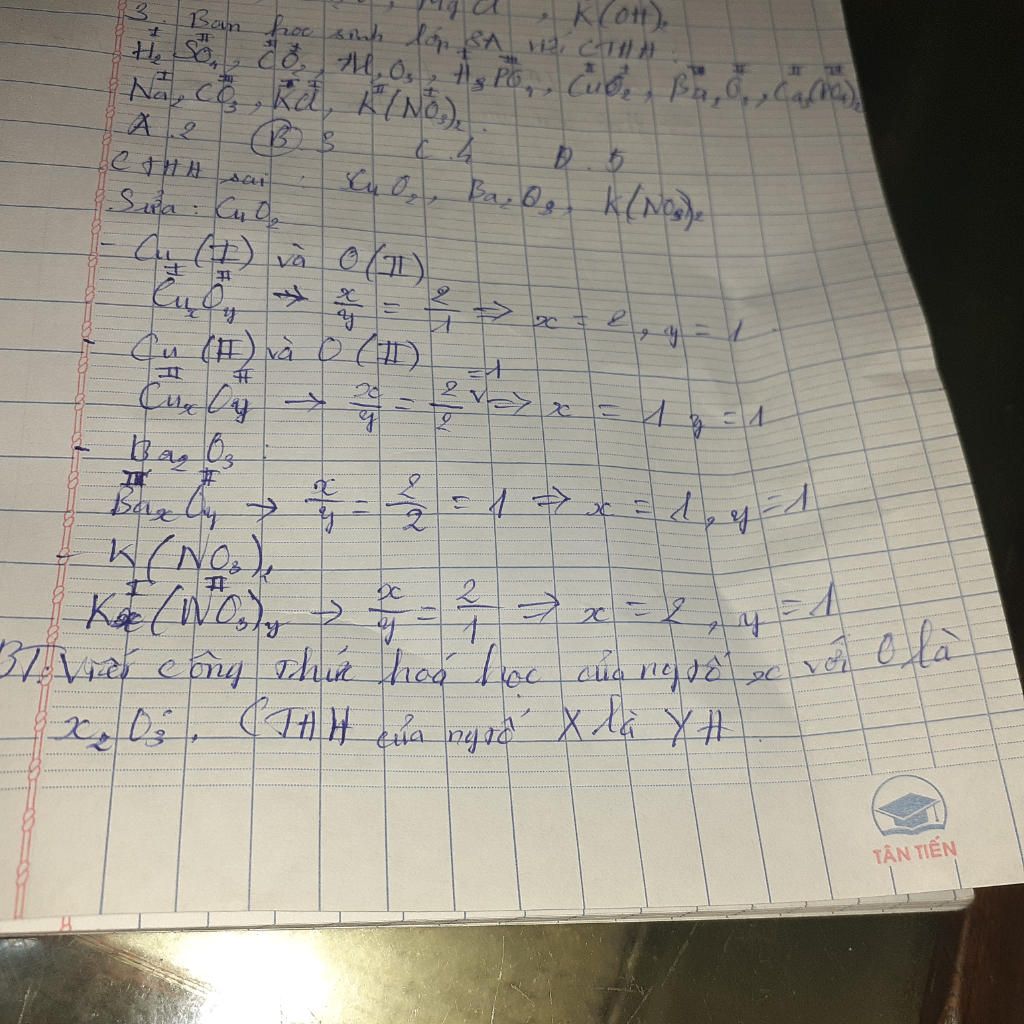 Mg Cl , K(OH)2
3. Bạn học sinh lớp 8A viết CTHH :
H2 SO4, CO2, Al2O3, H3PO4, CuO2, Ba2O3, Ca3(PO4)2
Na2CO3, KCl, K(NO3)2.
A. 2 B 3 C. 4 D. 5
CTHH sai : CuO2, Ba2O3, K(NO3)2
Sửa : CuO2
- Cu (I) và O(II)
I II
CuxOy → x/y = 2/1 => x = 2, y = 1
- Cu (II) và O (II)
II II
CuxOy → x/y = 2/2 = 1 => x = 1 y = 1
- Ba2 O3 :
III II
BaxOy → x/y = 2/2 = 1 => x = 1, y = 1
- K(NO3)2
I II
Kx(NO3)y → x/y = 2/1 => x = 2, y = 1
BT: Viết công thức hoá học của ngtố x với O là
x2O3. CTHH của ngtố X là YH
TÂN TIẾN